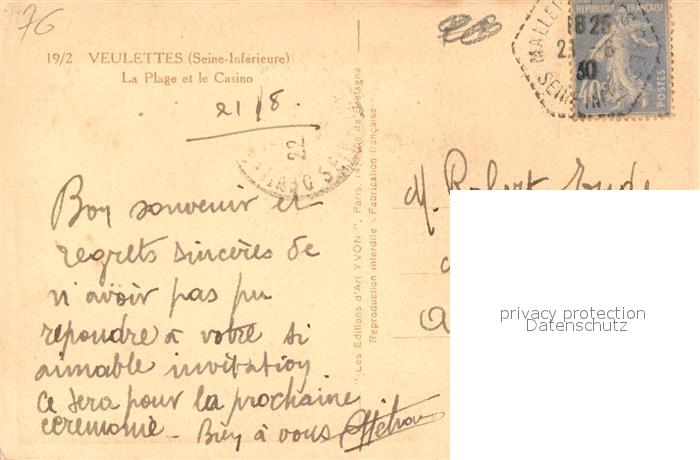 76
19/2 VEULETTES (Seine-Inférieure)
La Plage et le Casino
21/8.
Bon souvenir et
regrets sincères de
n'avoir pas pu
répondre à votre si
aimable invitation
ce sera pour la prochaine
cérémonie - Bien à vous
"Les Editions d'Art YVON", Paris, de Bretagne
Reproduction interdite - Fabrication française
RÉPUBLIQUE FRANÇAISE
POSTES
50
40c
18 25
SEINE INF
22
M. Robert
privacy protection
Datenschutz